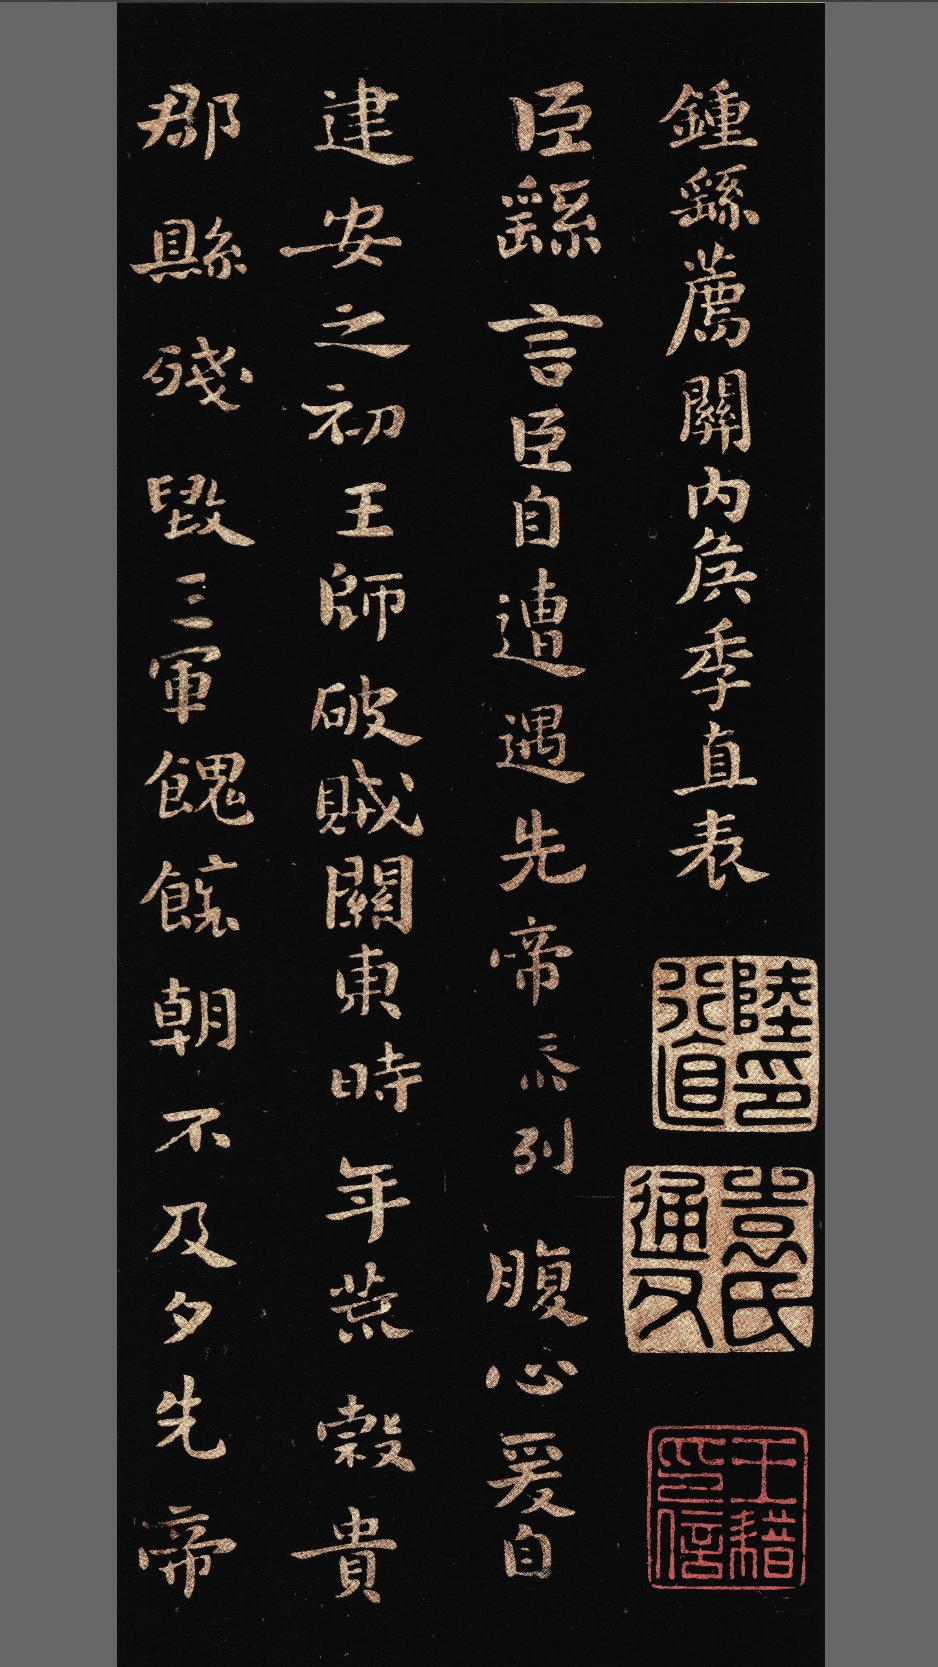 鍾繇薦關内侯季直表
臣繇言臣自遭遇先帝忝列腹心爰自
建安之初王師破賊關東時年荒糓貴
郡縣殘毀三軍餽饟朝不及夕先帝
陸印行直
袁氏通父
王藉印信